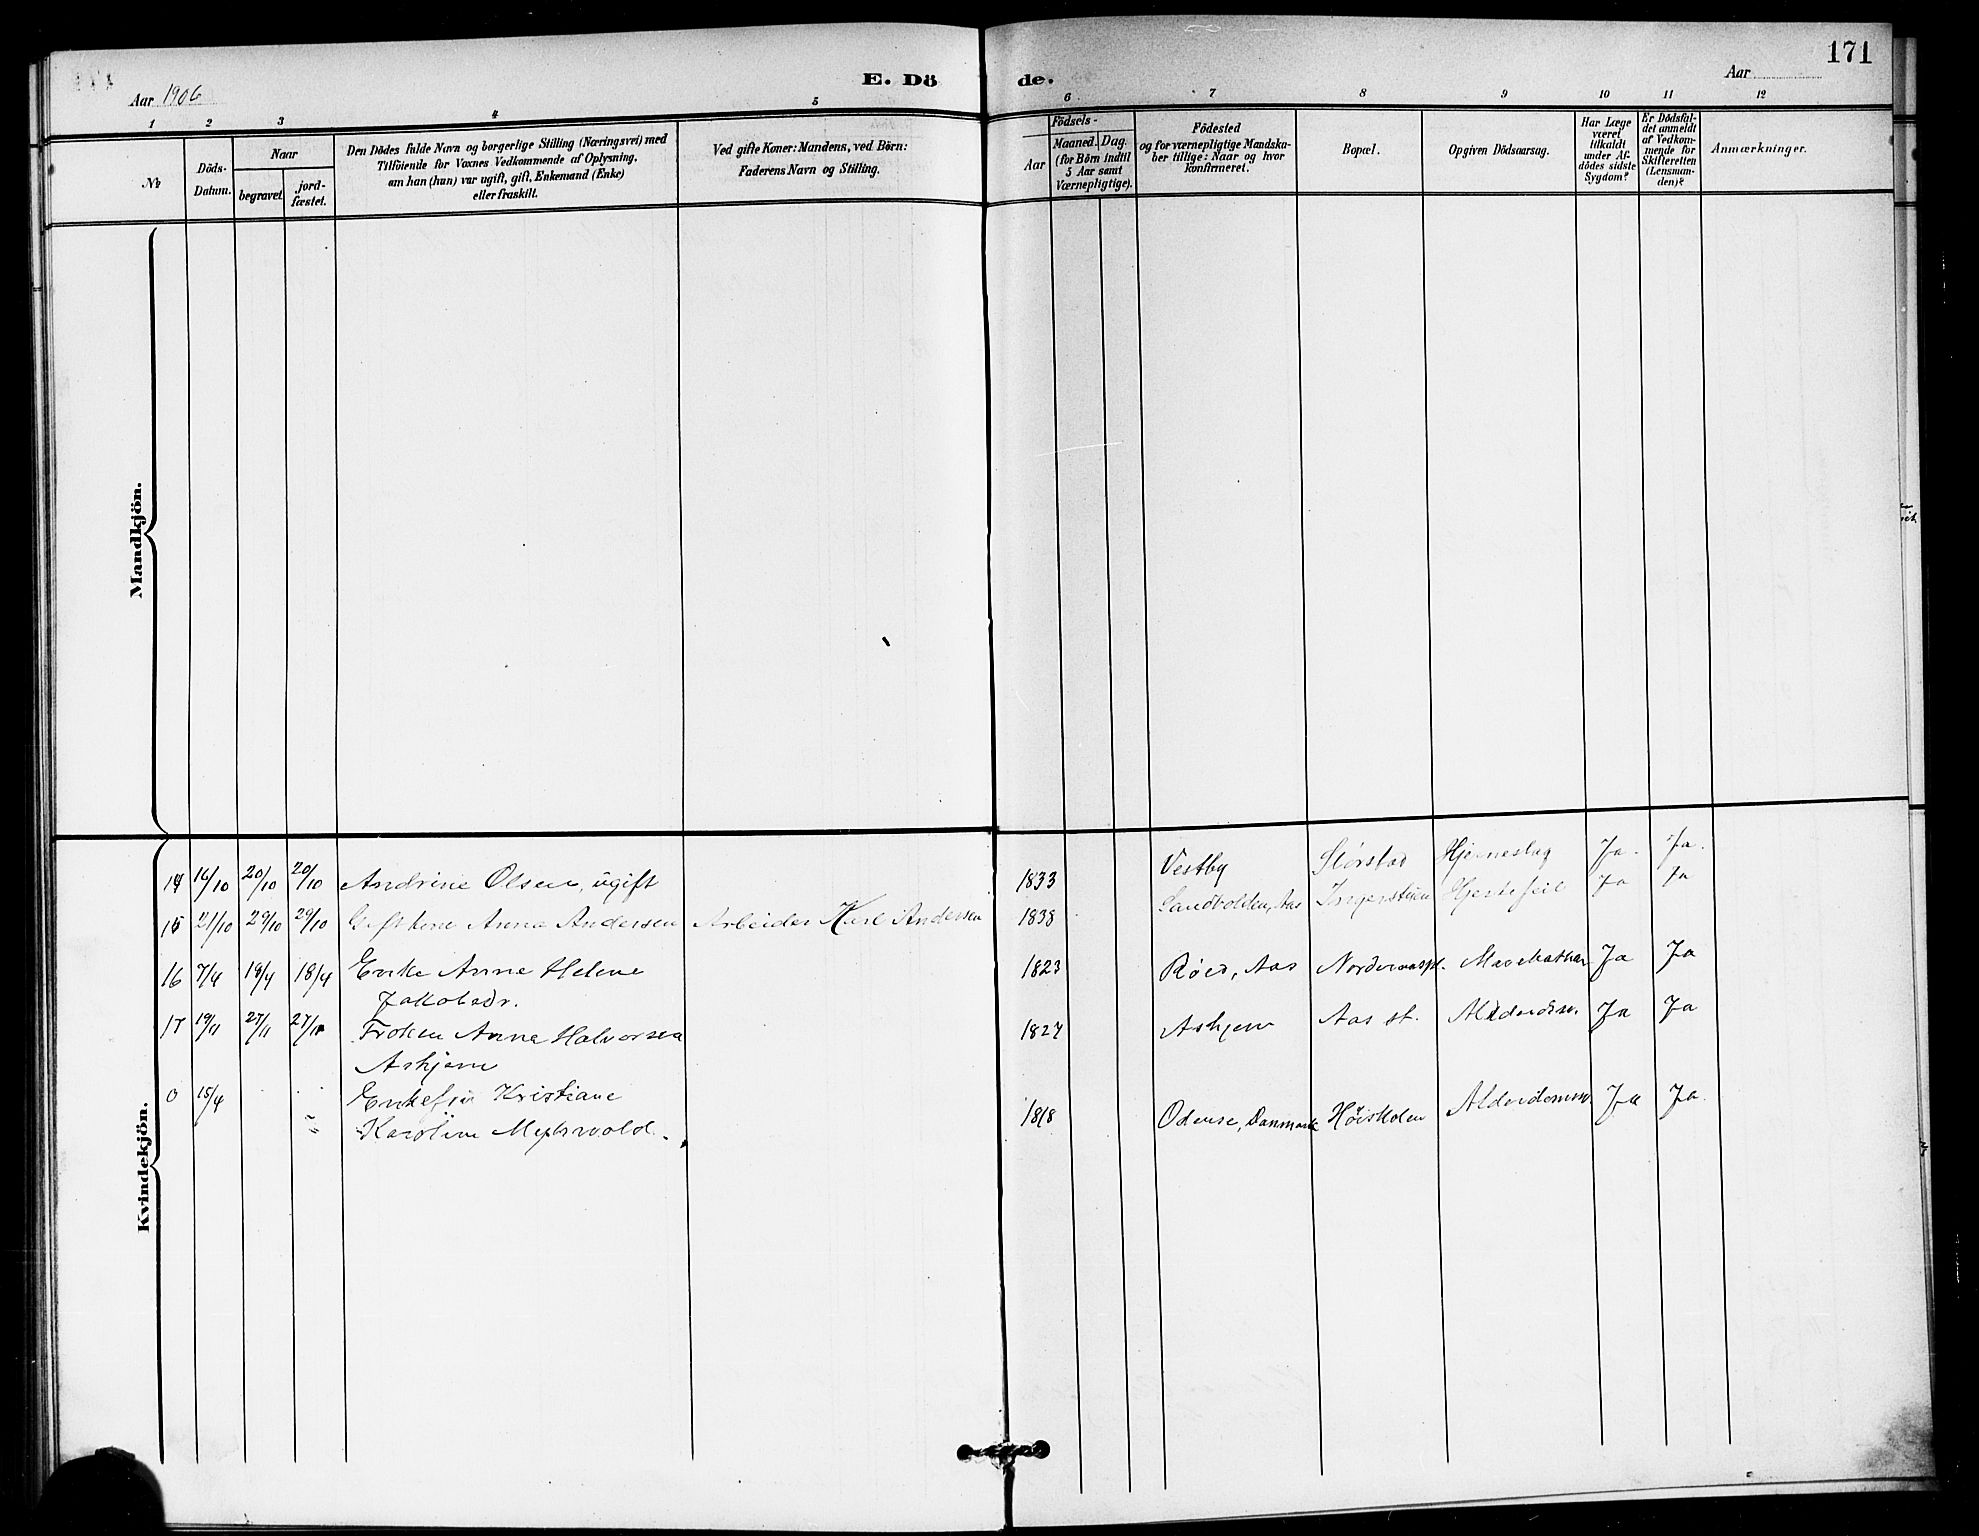 171
Aar 1906
E. Dö
de.
Aar
1 2 3 4 5 6 7 8 9 10 11 12
№
Döds-
Datum.
Naar
begravet
jord-
fæstet.
Den Dödes fulde Navn og borgerlige Stilling (Næringsvei) med
Tilföiende for Voxnes Vedkommende af Oplysning,
om han (hun) var ugift, gift, Enkemand (Enke)
eller fraskilt.
Ved gifte Koner: Mandens, ved Börn:
Faderens Navn og Stilling.
Födsels-
Aar
Maaned. Dag.
(for Börn indtil
5 Aar samt
Værnepligtige).
Födested
og for værnepligtige Mandska-
ber tillige: Naar og hvor
konfirmeret.
Bopæl.
Opgiven Dödsaarsag.
Har Læge
været
tilkaldt
under Af-
dödes sidste
Sygdom?
Er Dödsfal-
det anmeldt
af Vedkom-
mende for
Skifteretten
(Lensman-
den)?
Anmærkninger.
Mandkjön.
Kvindekjön.
14 16/10 20/10 20/10 Andrine Olsen, ugift 1833 Vestby Störstad Hjerneslag Ja. Ja.
15 21/10 29/10 29/10 Gift kone Anna Andersen Arbeider Karl Andersen 1838 Aas Hjertefeil Ja Ja
16 7/4 18/4 18/4 Enke Anne Helene 1823 Röed, Aas Ja Ja
Jakobsdr.
17 19/11 27/11 27/11 Fröken Anne Halvorsen 1827 Askjem Aas st. Ja Ja
Askjem
0 15/4 Enkefru Kristiane
Karoline 1818 Odense, Danmark Höiskolen Ja Ja.